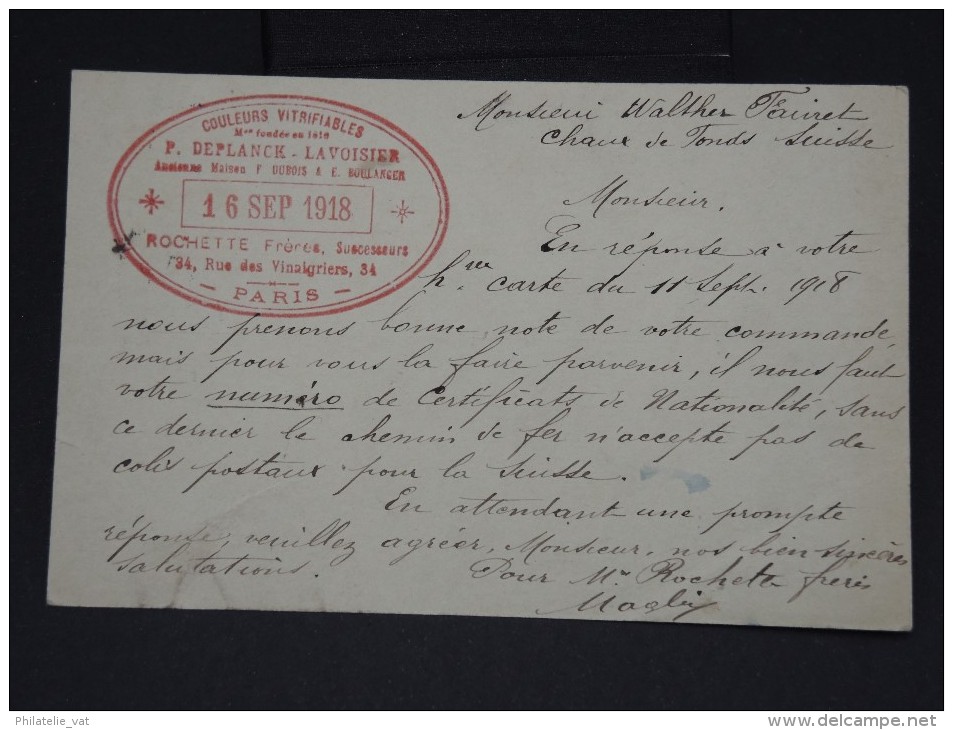 COULEURS VITRIFIABLES
Mon fondée en 1818
P. DEPLANCK - LAVOISIER
Ancienne Maison F DUBOIS & E. BOULANGER
16 SEP 1918
ROCHETTE Frères, Successeurs
34, Rue des Vinaigriers, 34
PARIS
Monsieur Walther Fauret
Chaux de Fonds Suisse
Monsieur.
En réponse à votre
carte du 11 Sept. 1918
nous prenons bonne note de votre commande,
mais pour vous la faire parvenir, il nous faut
votre numéro de Certificats de Nationalité, sans
ce dernier le chemin de fer n'accepte pas de
colis postaux pour la Suisse.
En attendant une prompte
réponse, veuillez agréer, Monsieur, nos bien sincères
salutations.
Pour Mrs Rochette frères
Philatelie_vat
www.delcampe.net